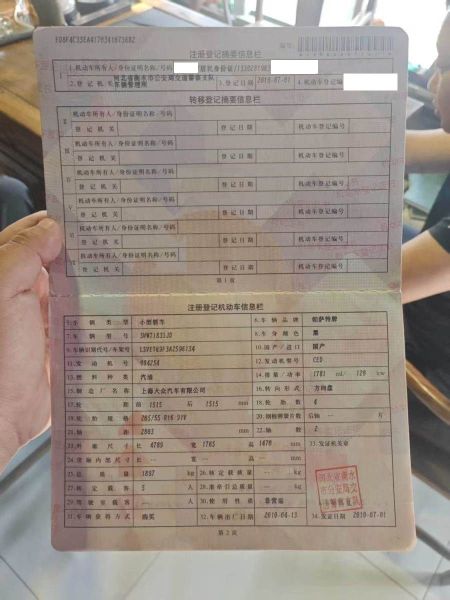 注册登记摘要信息栏
编号:
1.机动车所有人/身份证明名称/号码 居民身份证/
2.登记机关 河北省衡水市公安局交通警察支队车辆管理所 3.登记日期 2010-07-01 4.机动车登记编号
转移登记摘要信息栏
机动车所有人/身份证明名称/号码
登记机关 登记日期 机动车登记编号
机动车所有人/身份证明名称/号码
登记机关 登记日期 机动车登记编号
机动车所有人/身份证明名称/号码
登记机关 登记日期 机动车登记编号
机动车所有人/身份证明名称/号码
登记机关 登记日期 机动车登记编号
机动车所有人/身份证明名称/号码
登记机关 登记日期 机动车登记编号
第1页
注册登记机动车信息栏
5.车辆类型 小型轿车 6.车辆品牌 帕萨特牌
7.车辆型号 8.车身颜色 黑
9.车辆识别代号/车架号 10.国产/进口 国产
11.发动机号 12.发动机型号 CED
13.燃料种类 汽油 14.排量/功率 1781 ml/ kw
15.制造厂名称 上海大众汽车有限公司 16.转向形式 方向盘
17.轮距 前 1515 后 1515 mm 18.轮胎数 4
19.轮胎规格 20.钢板弹簧片数 后轴 -- 片
21.轴距 2803 mm 22.轴数 2
23.外廓尺寸 长 4789 宽 1765 高 1470 mm 33.发证机关章
24.货厢内部尺寸 长 -- 宽 -- 高 -- mm
25.总质量 kg 26.核定载质量 -- kg
27.核定载客 5 人 28.准牵引总质量 -- kg
29.驾驶室载客 -- 人 30.使用性质 非营运
31.车辆获得方式 购买 32.车辆出厂日期 2010-04-13 34.发证日期 2010-07-01
第2页